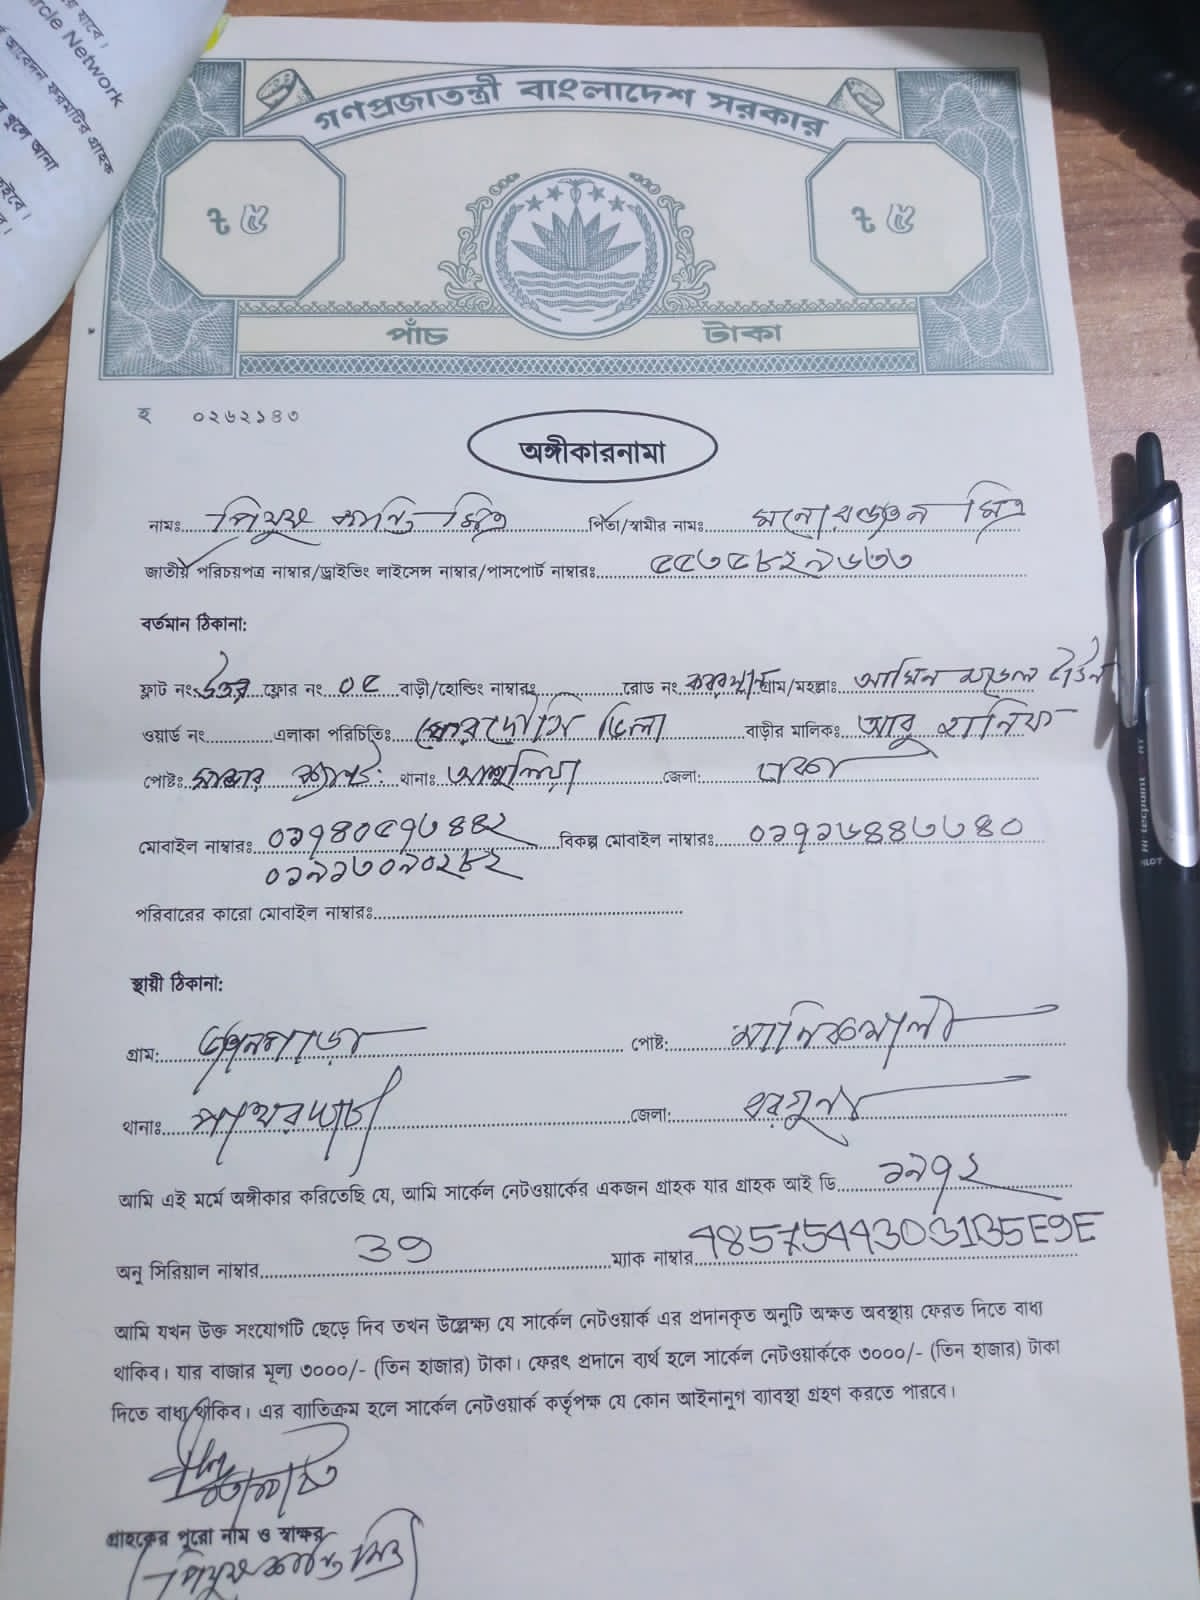 যাবে।
ircle Network
আবেদন ফরমটির গ্রাহক
খুলে আনা
গণপ্রজাতন্ত্রী বাংলাদেশ সরকার
৳ ৫
৳ ৫
পাঁচ টাকা
হ ০২৬২১৪৩
অঙ্গীকারনামা
নামঃ পিযুষ কান্তি মিত্র পিতা/স্বামীর নামঃ মনোরঞ্জন মিত্র
জাতীয় পরিচয়পত্র নাম্বার/ড্রাইভিং লাইসেন্স নাম্বার/পাসপোর্ট নাম্বারঃ ৫৫৩৫৮২৯৬৩৩
বর্তমান ঠিকানা:
ফ্লাট নং উত্তর ফ্লোর নং ০৫ বাড়ী/হোল্ডিং নাম্বারঃ রোড নং কবরস্থান গ্রাম/মহল্লাঃ আমিন মডেল টাউন
ওয়ার্ড নং এলাকা পরিচিতিঃ ফেরদৌসি ভিলা বাড়ীর মালিকঃ আবু হানিফ
পোষ্টঃ সাভার ক্যান্ট: থানাঃ আশুলিয়া জেলা: ঢাকা
মোবাইল নাম্বারঃ ০১৭৪০৫৭৩৪৪২ বিকল্প মোবাইল নাম্বারঃ ০১৭১৬৪৪৩৩৪০
০১৯১৩০৯০২৮২
পরিবারের কারো মোবাইল নাম্বারঃ
স্থায়ী ঠিকানা:
গ্রাম: পোষ্ট: মানিকখালী
থানাঃ পাথরঘাটা জেলা: বরগুনা
আমি এই মর্মে অঙ্গীকার করিতেছি যে, আমি সার্কেল নেটওয়ার্কের একজন গ্রাহক যার গ্রাহক আই ডি ১৯৭২
অনু সিরিয়াল নাম্বার 39 ম্যাক নাম্বার 48575443031B5E9E
আমি যখন উক্ত সংযোগটি ছেড়ে দিব তখন উল্লেক্ষ্য যে সার্কেল নেটওয়ার্ক এর প্রদানকৃত অনুটি অক্ষত অবস্থায় ফেরত দিতে বাধ্য
থাকিব। যার বাজার মূল্য ৩০০০/- (তিন হাজার) টাকা। ফেরৎ প্রদানে ব্যর্থ হলে সার্কেল নেটওয়ার্ককে ৩০০০/- (তিন হাজার) টাকা
দিতে বাধ্য থাকিব। এর ব্যাতিক্রম হলে সার্কেল নেটওয়ার্ক কর্তৃপক্ষ যে কোন আইনানুগ ব্যাবস্থা গ্রহণ করতে পারবে।
গ্রাহকের পুরো নাম ও স্বাক্ষর
(পিযুষ কান্তি মিত্র)
PILOT